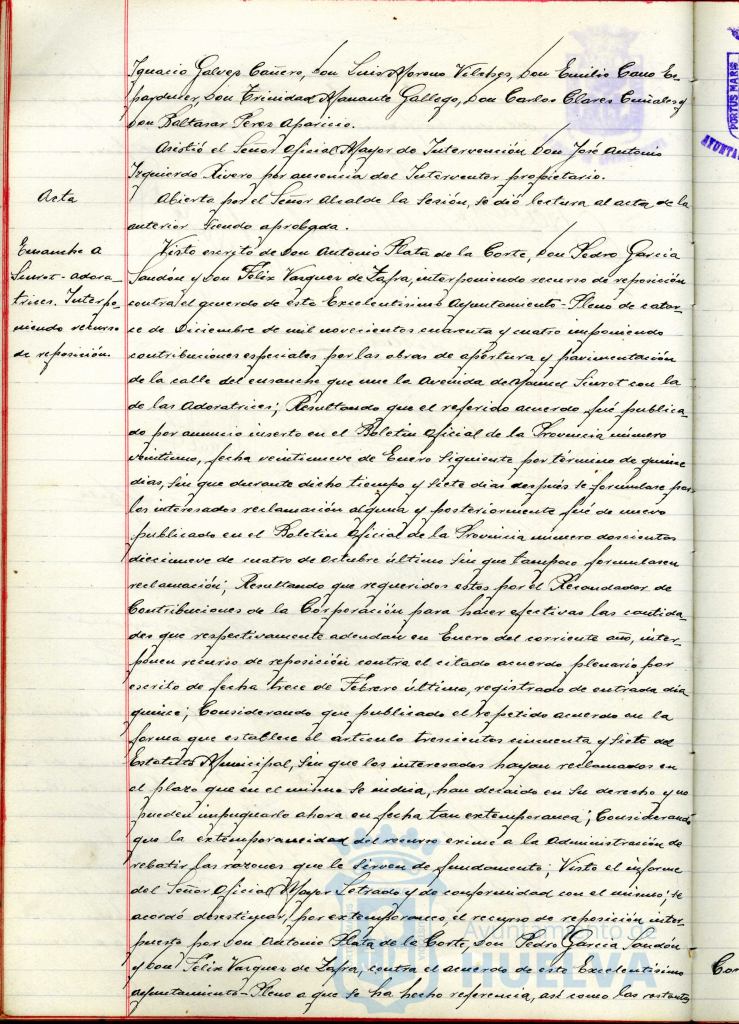 Ignacio Galvez Cañero, Don Luis Moreno Vilches, Don Emilio Cano Es-
parducer, Don Trinidad Manante Gallego, Don Carlos Clares Cuñales y
Don Baltasar Perez Aparicio.
Asistió el Señor Oficial Mayor de Intervención Don José Antonio
Izquierdo Rivero por ausencia del Interventor propietario.
Acta
Abierta por el Señor Alcalde la Sesión, se dió lectura al acta de la
anterior siendo aprobada.
Ensanche a
Siurot-Adora-
trices. Interpo-
niendo recurso
de reposición.
Visto escrito de Don Antonio Plata de la Corte, Don Pedro Garcia
Sandón y Don Felix Vazquez de Zafra, interponiendo recurso de reposición
contra el acuerdo de este Excelentisimo Ayuntamiento-Pleno de cator-
ce de Diciembre de mil novecientos cuarenta y cuatro imponiendo
contribuciones especiales por las obras de apertura y pavimentación
de la calle del ensanche que une la Avenida de Manuel Siurot con la
de las Adoratrices; Resultando que el referido acuerdo fué publica-
do por anuncio inserto en el Boletin Oficial de la Provincia número
veintiuno, fecha veintinueve de Enero siguiente por término de quince
dias, sin que durante dicho tiempo y siete dias después se formulase por
los interesados reclamación alguna y posteriormente fué de nuevo
publicado en el Boletin Oficial de la Provincia número doscientos
diecinueve de cuatro de Octubre último sin que tampoco formulasen
reclamación; Resultando que requeridos estos por el Recaudador de
Contribuciones de la Corporación para hacer efectivas las cantida-
des que respectivamente adeudan en Enero del corriente año, inter-
ponen recurso de reposición contra el citado acuerdo plenario por
escrito de fecha trece de Febrero último, registrado de entrada dia
quince; Considerando que publicado el repetido acuerdo en la
forma que establece el articulo trescientos cincuenta y siete del
Estatuto Municipal, sin que los interesados hayan reclamados en
el plazo que en el mismo se indica, han decaido en su derecho y no
pueden impugnarlo ahora en fecha tan extemporanea; Considerando
que la extemporaneidad del recurso exime a la Administración de
rebatir las razones que le sirven de fundamento; Visto el informe
del Señor Oficial Mayor Letrado y de conformidad con el mismo; se
acordó desestimar, por extemporaneo, el recurso de reposición inter-
puesto por Don Antonio Plata de la Corte, Don Pedro Garcia Sandón
y Don Felix Vazquez de Zafra, contra el acuerdo de este Excelentisimo
Ayuntamiento-Pleno a que se ha hecho referencia, asi como las restantes
Ayuntamiento de
HUELVA
PORTUS MARIS
AYUNTA
Con